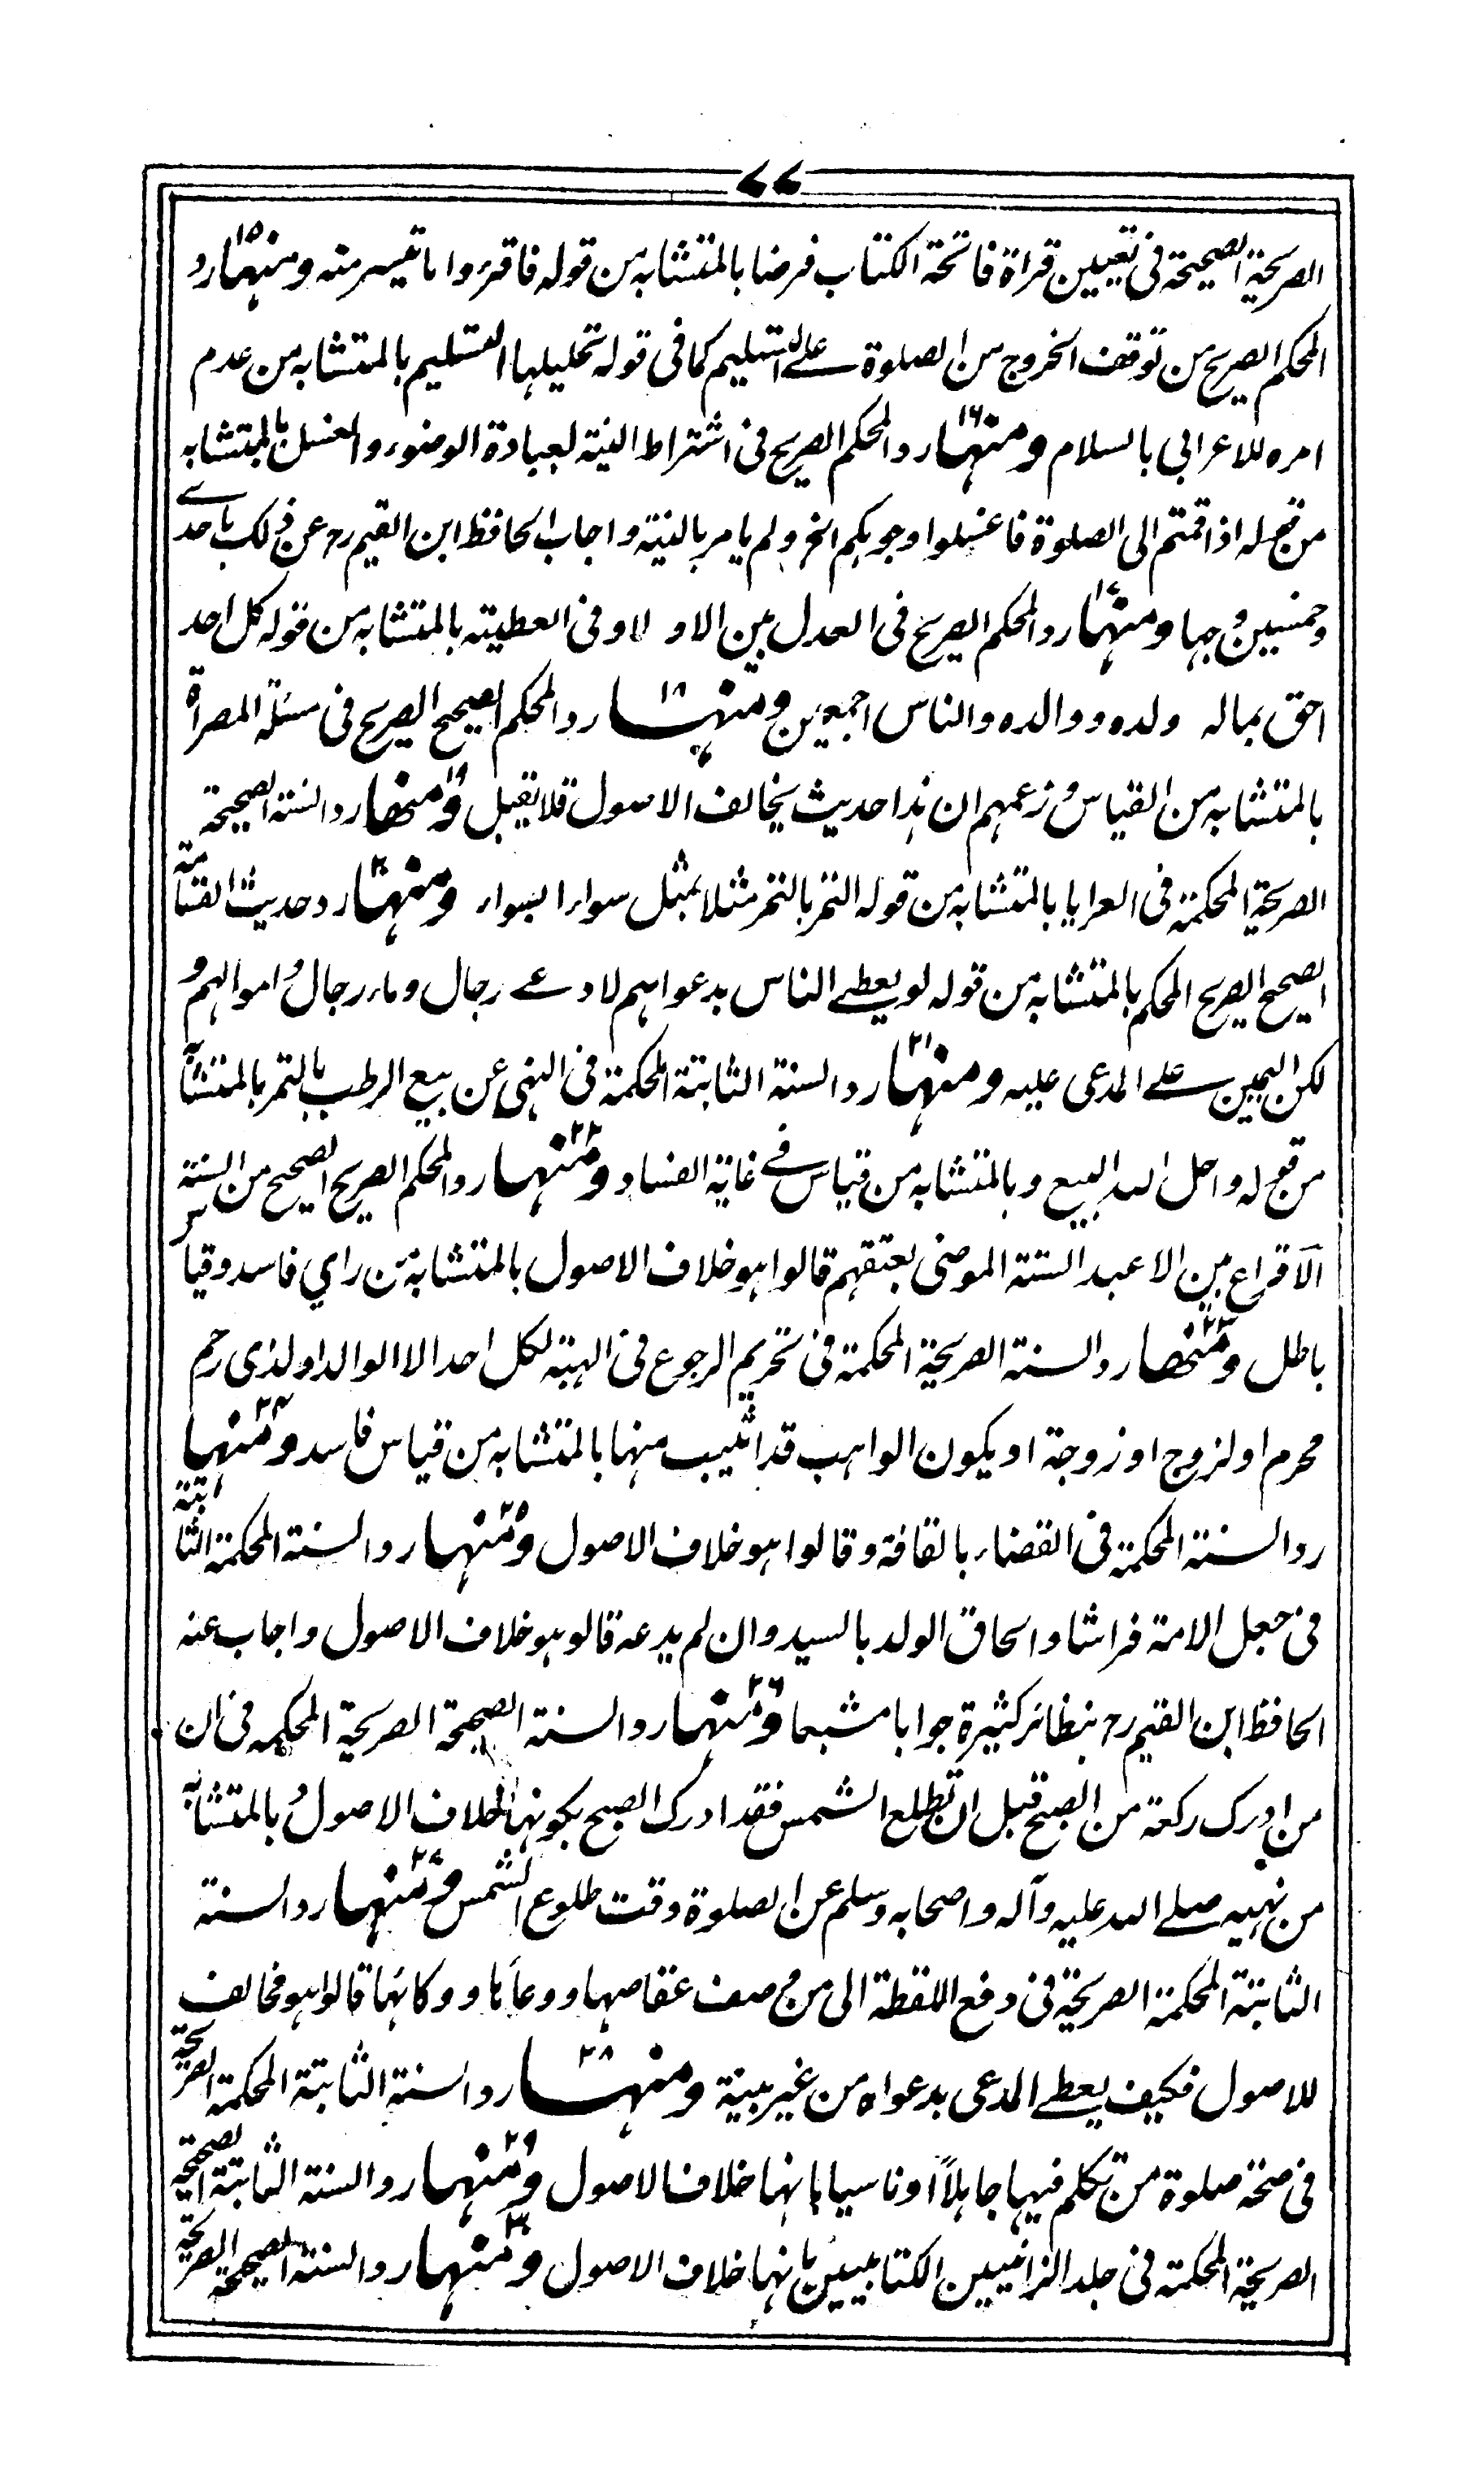 ٧٧
الصريحة الصحيحة فى تعيين قراة فاتحة الكتاب فرضا بالمتشابه من قوله فاقرؤا ما تيسر منه ومنها ١٥ رد
المحكم الصريح من توقف الخروج من الصلوة على التسليم كما فى قوله تحليلها التسليم بالمتشابه من عدم
امره للاعرابى بالسلام ومنها ١٦ رد المحكم الصريح فى اشتراط النية لعبادة الوضوء والغسل بالمتشابه
من قوله اذا قمتم الى الصلوة فاغسلوا وجوهكم الخ ولم يامر بالنية واجاب الحافظ ابن القيم رح عن ذلك باحدے
وخمسين وجها ومنها ١٧ رد المحكم الصريح فى العدل بين الاولاد فى العطية بالمتشابه من قوله كل احد
احق بماله ولده ووالده والناس اجمعين ومنها ١٨ رد المحكم الصحيح الصريح فى مسئلة المصراة
بالمتشابه من القياس وزعمهم ان هذا حديث يخالف الاصول فلا يقبل ومنها ١٩ رد السنة الصحيحة
الصريحة المحكمة فى العرايا بالمتشابه من قوله التمر بالتمر مثلا بمثل سواء بسواء ومنها ٢٠ رد حديث القسامة
الصحيح الصريح المحكم بالمتشابه من قوله لو يعطى الناس بدعواهم لادعى رجال دماء رجال واموالهم و
لكن اليمين على المدعى عليه ومنها ٢١ رد السنة الثابتة المحكمة فى النهى عن بيع الرطب بالتمر بالمتشابه
من قوله واحل الله البيع وبالمتشابه من قياس فے غاية الفساد ومنها ٢٢ رد المحكم الصريح الصحيح من السنة
الاقراع بين الاعبد الستة الموصى بعتقهم قالوا هو خلاف الاصول بالمتشابه من راي فاسد وقياس
باطل ومنها ٢٣ رد السنة الصريحة المحكمة فى تحريم الرجوع فى الهبة لكل احد الا الوالد او لذى رحم
محرم او لزوج او زوجة او يكون الواهب قد اثيب منها بالمتشابه من قياس فاسد ومنها ٢٤
رد السنة المحكمة فى القضاء بالقافة وقالوا هو خلاف الاصول ومنها ٢٥ رد السنة المحكمة الثابتة
فى جعل الامة فراشا والحاق الولد بالسيد وان لم يدعه قالو هو خلاف الاصول واجاب عنه
الحافظ ابن القيم رح بنظائر كثيرة جوابا مشبعا ومنها ٢٦ رد السنة الصحيحة الصريحة المحكمه فى ان
من ادرك ركعة من الصبح قبل ان تطلع الشمس فقد ادرك الصبح بكونها خلاف الاصول وبالمتشابه
من نهيه صلے الله عليه وآله واصحابه وسلم عن الصلوة وقت طلوع الشمس ومنها ٢٧ رد السنة
الثابتة المحكمة الصريحة فى دفع اللقطة الى من وصف عفاصها ووعاءها ووكائها قالوا هو مخالف
للاصول فكيف يعطے المدعى بدعواه من غير بينة ومنها ٢٨ رد السنة الثابتة المحكمة الصريحة
فى صحة صلوة من تكلم فيها جاهلاً او ناسيا بانها خلاف الاصول ومنها ٢٩ رد السنة الثابتة الصحيحة
الصريحة المحكمة فى جلد الزانيين الكتابيين بانها خلاف الاصول ومنها ٣٠ رد السنة الصحيحة الصريحة